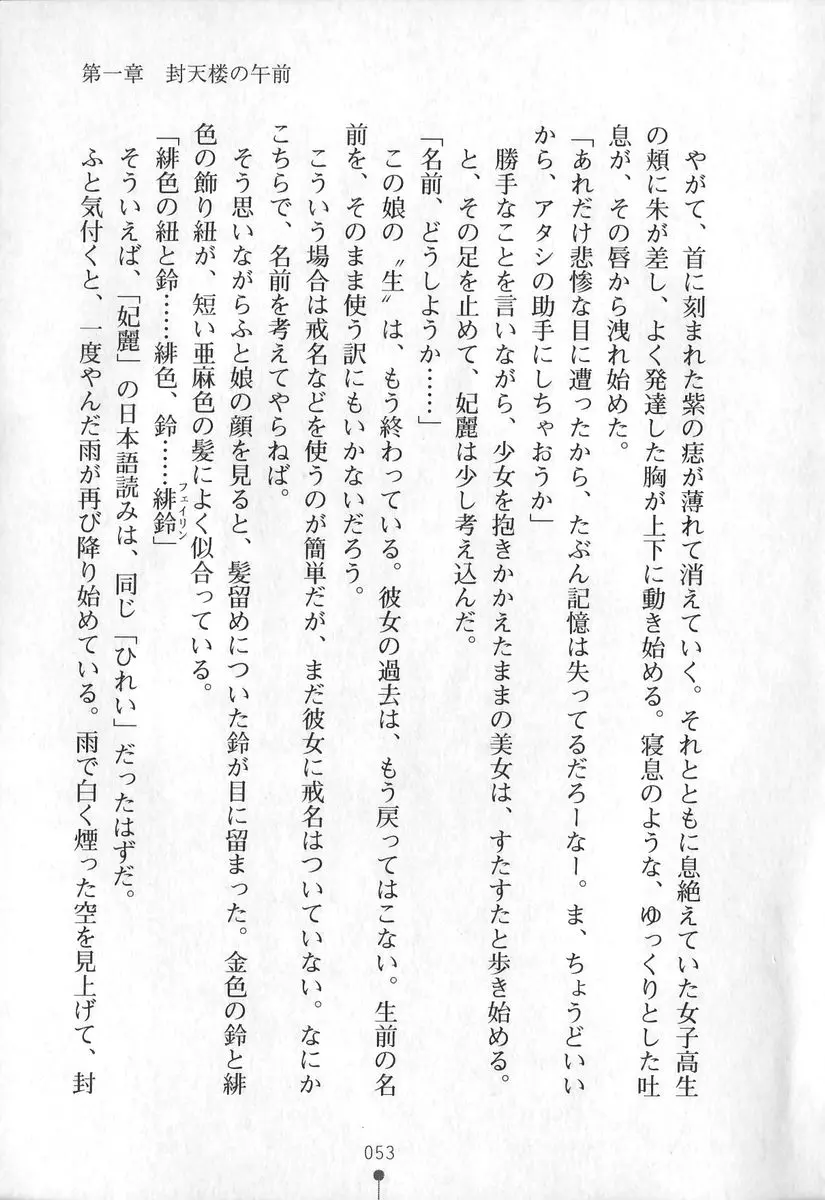 第一章　封天楼の午前
　やがて、首に刻まれた紫の痣が薄れて消えていく。それとともに息絶えていた女子高生
の頬に朱が差し、よく発達した胸が上下に動き始める。寝息のような、ゆっくりとした吐
息が、その唇から洩れ始めた。
「あれだけ悲惨な目に遭ったから、たぶん記憶は失ってるだろーなー。ま、ちょうどいい
から、アタシの助手にしちゃおうか」
　勝手なことを言いながら、少女を抱きかかえたままの美女は、すたすたと歩き始める。
　と、その足を止めて、妃麗は少し考え込んだ。
「名前、どうしようか……」
　この娘の〝生〟は、もう終わっている。彼女の過去は、もう戻ってはこない。生前の名
前を、そのまま使う訳にもいかないだろう。
　こういう場合は戒名などを使うのが簡単だが、まだ彼女に戒名はついていない。なにか
こちらで、名前を考えてやらねば。
　そう思いながらふと娘の顔を見ると、髪留めについた鈴が目に留まった。金色の鈴と緋
色の飾り紐が、短い亜麻色の髪によく似合っている。
「緋色の紐と鈴……緋色、鈴……緋鈴フェイリン」
　そういえば、「妃麗」の日本語読みは、同じ「ひれい」だったはずだ。
　ふと気付くと、一度やんだ雨が再び降り始めている。雨で白く煙った空を見上げて、封
053